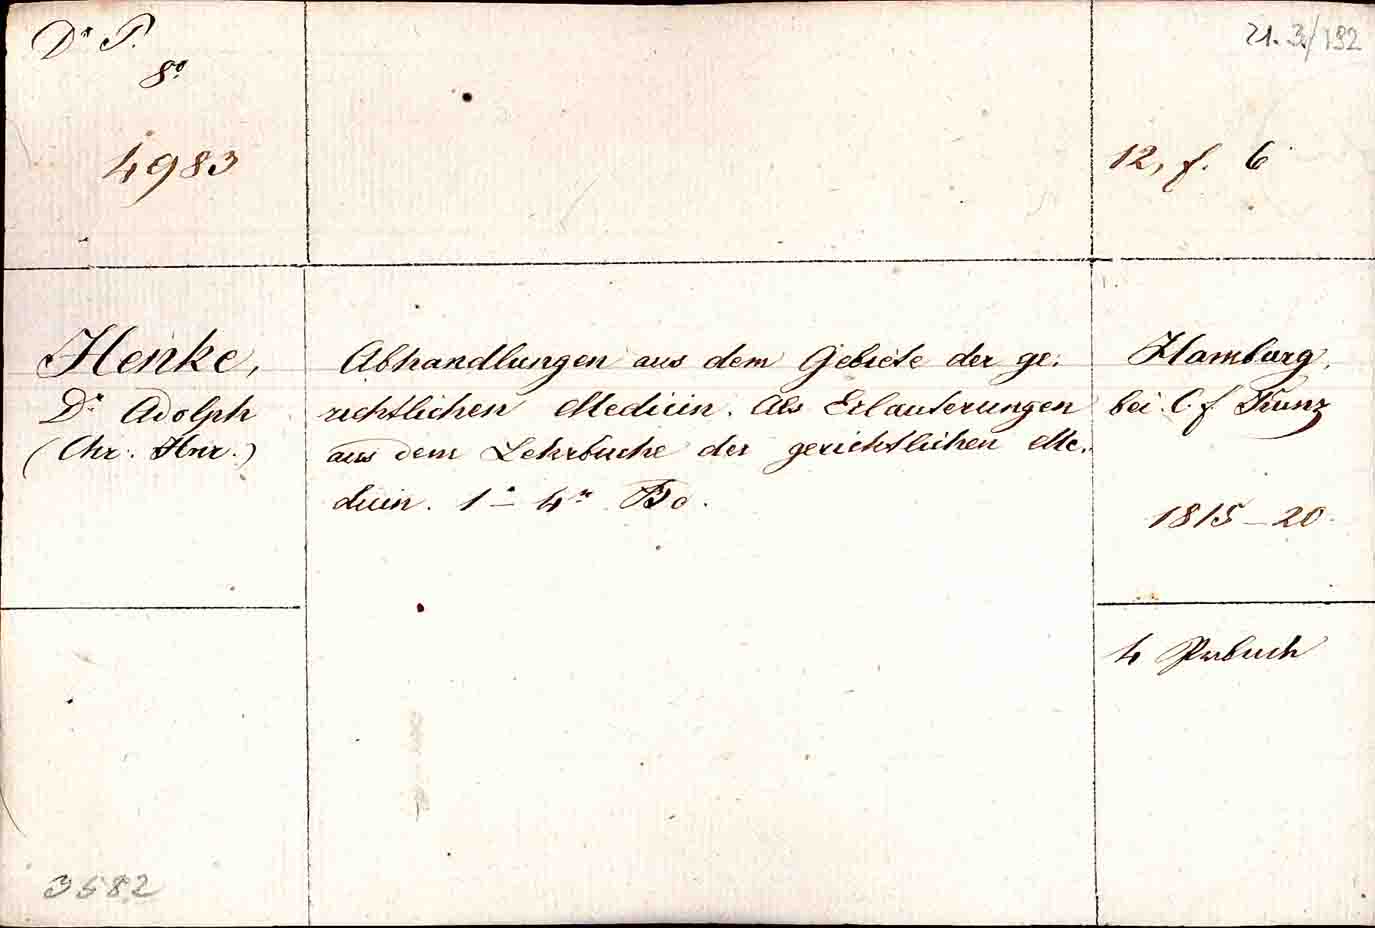 Dr P.
8o
4983
21.3/192
12, f. 6
Henke,
Dr Adolph
(Chr. Hnr.)
Abhandlungen aus dem Gebiete der ge-
richtlichen Medicin. Als Erlauterungen
aus dem Lehrbuche der gerichtlichen Me-
dicin. 1r – 4r Bd.
Hamburg,
bei C. f. Kunz
1815–20.
4
3582